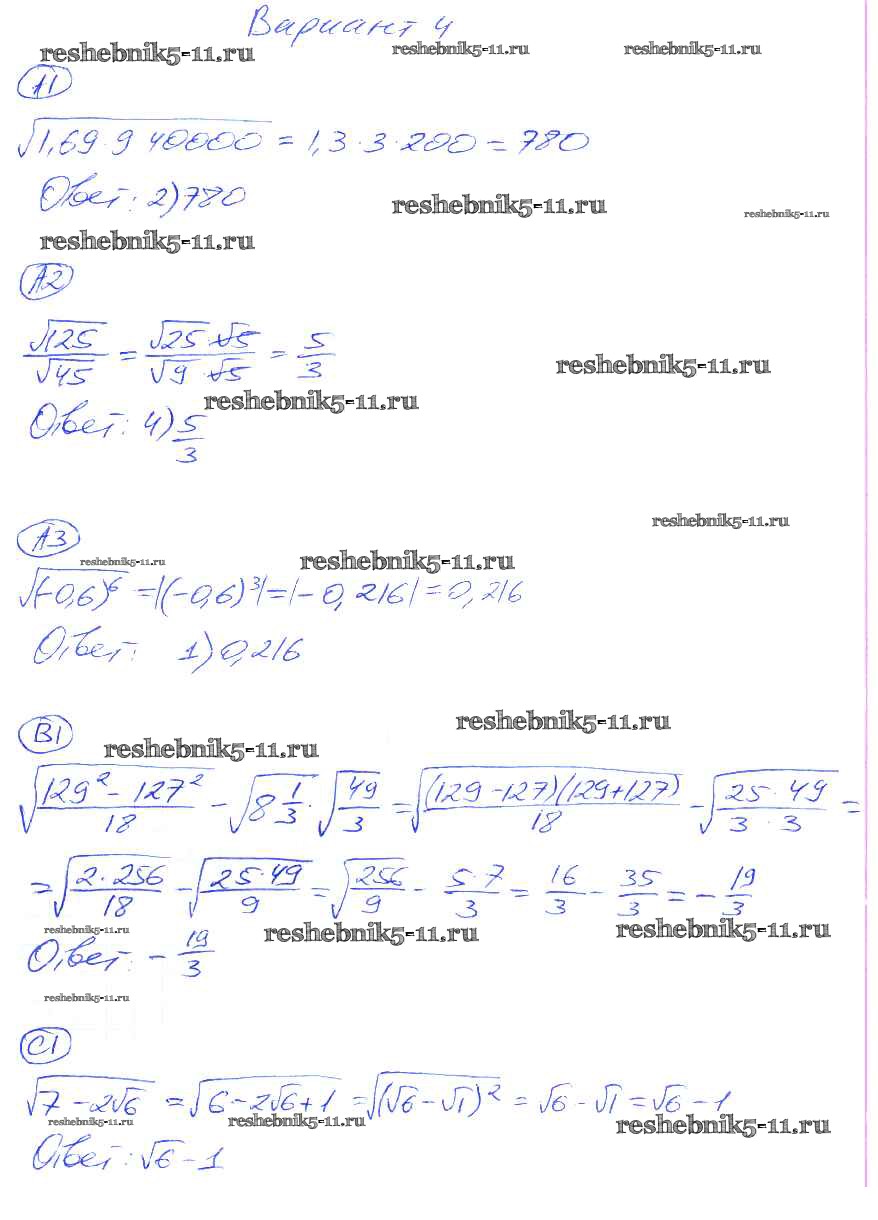 Вариант 4
reshebnik5-11.ru reshebnik5-11.ru reshebnik5-11.ru
А1
√(1,69·9 40000) = 1,3·3·200 = 780
Ответ: 2) 780
reshebnik5-11.ru reshebnik5-11.ru
reshebnik5-11.ru
А2
√125/√45 = (√25·√5)/(√9·√5) = 5/3
reshebnik5-11.ru
reshebnik5-11.ru
Ответ: 4) 5/3
reshebnik5-11.ru
А3
reshebnik5-11.ru reshebnik5-11.ru
√(-0,6)⁶ = |(-0,6)³| = |-0,216| = 0,216
Ответ: 1) 0,216
reshebnik5-11.ru
В1
reshebnik5-11.ru
√((129² - 127²)/18) - √(8 1/3) · √(49/3) = √((129-127)(129+127)/18) - √((25·49)/(3·3)) =
= √((2·256)/18) - √((25·49)/9) = √(256/9) - (5·7)/3 = 16/3 - 35/3 = -19/3
reshebnik5-11.ru reshebnik5-11.ru reshebnik5-11.ru
Ответ: -19/3
reshebnik5-11.ru
С1
√(7-2√6) = √(6-2√6+1) = √((√6-√1)²) = √6-√1 = √6-1
reshebnik5-11.ru reshebnik5-11.ru reshebnik5-11.ru
Ответ: √6-1